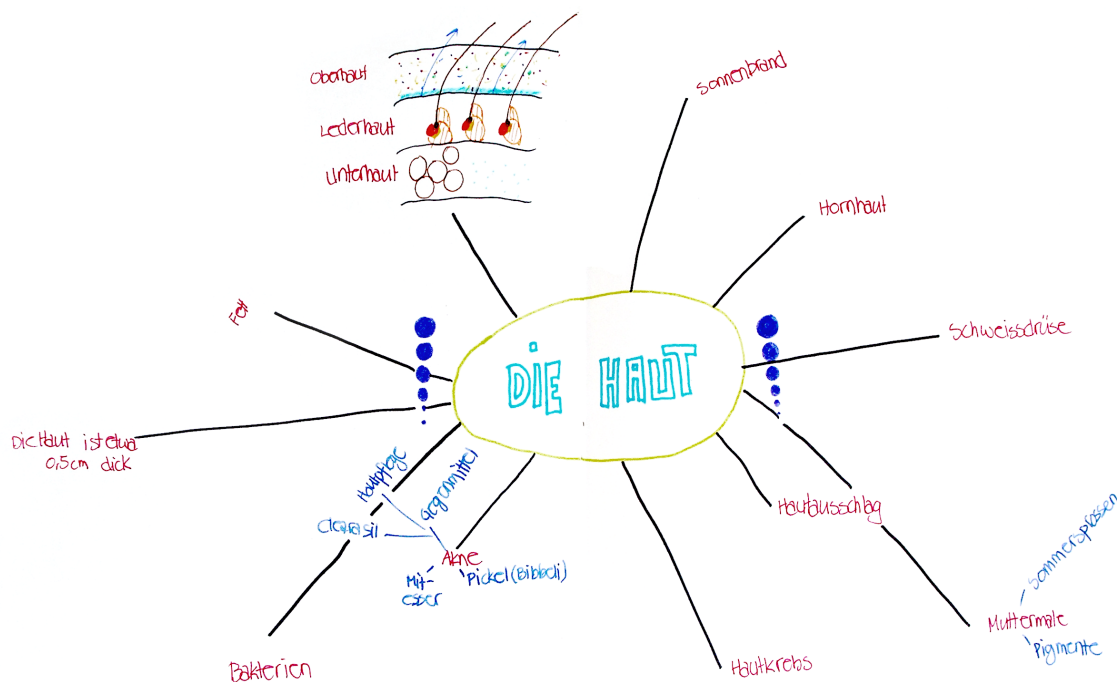 Oberhaut
Lederhaut
Unterhaut
Sonnenbrand
Hornhaut
Schweissdrüse
Fett
DIE HAUT
Die Haut ist etwa
0,5cm dick
Hautpflege
Gegenmittel
Clerasil
Akne
Mit-
esser
Pickel (Bibbeli)
Bakterien
Hautausschlag
Sommersprossen
Muttermale
Pigmente
Hautkrebs